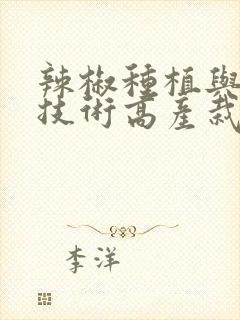 辣椒種植與
技術高產栽
李洋